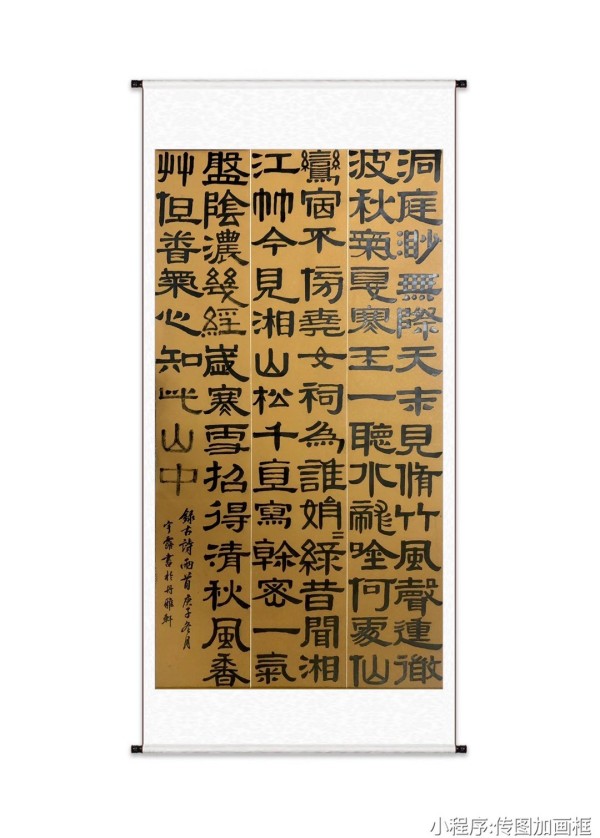 洞庭渺無際天末見脩竹風聲連徹
波秋氣夏寒玉一聽水龍唫何處仙
鸞宿不傍堯女祠為誰娟=綠昔聞湘
江竹今見湘山松千直寫幹密一氣
盤陰濃幾經歲寒雪招得清秋風香
艸但普氣心知此山中
錄古詩兩首庚子冬月
宇霖書於丹雅軒
小程序:传图加画框